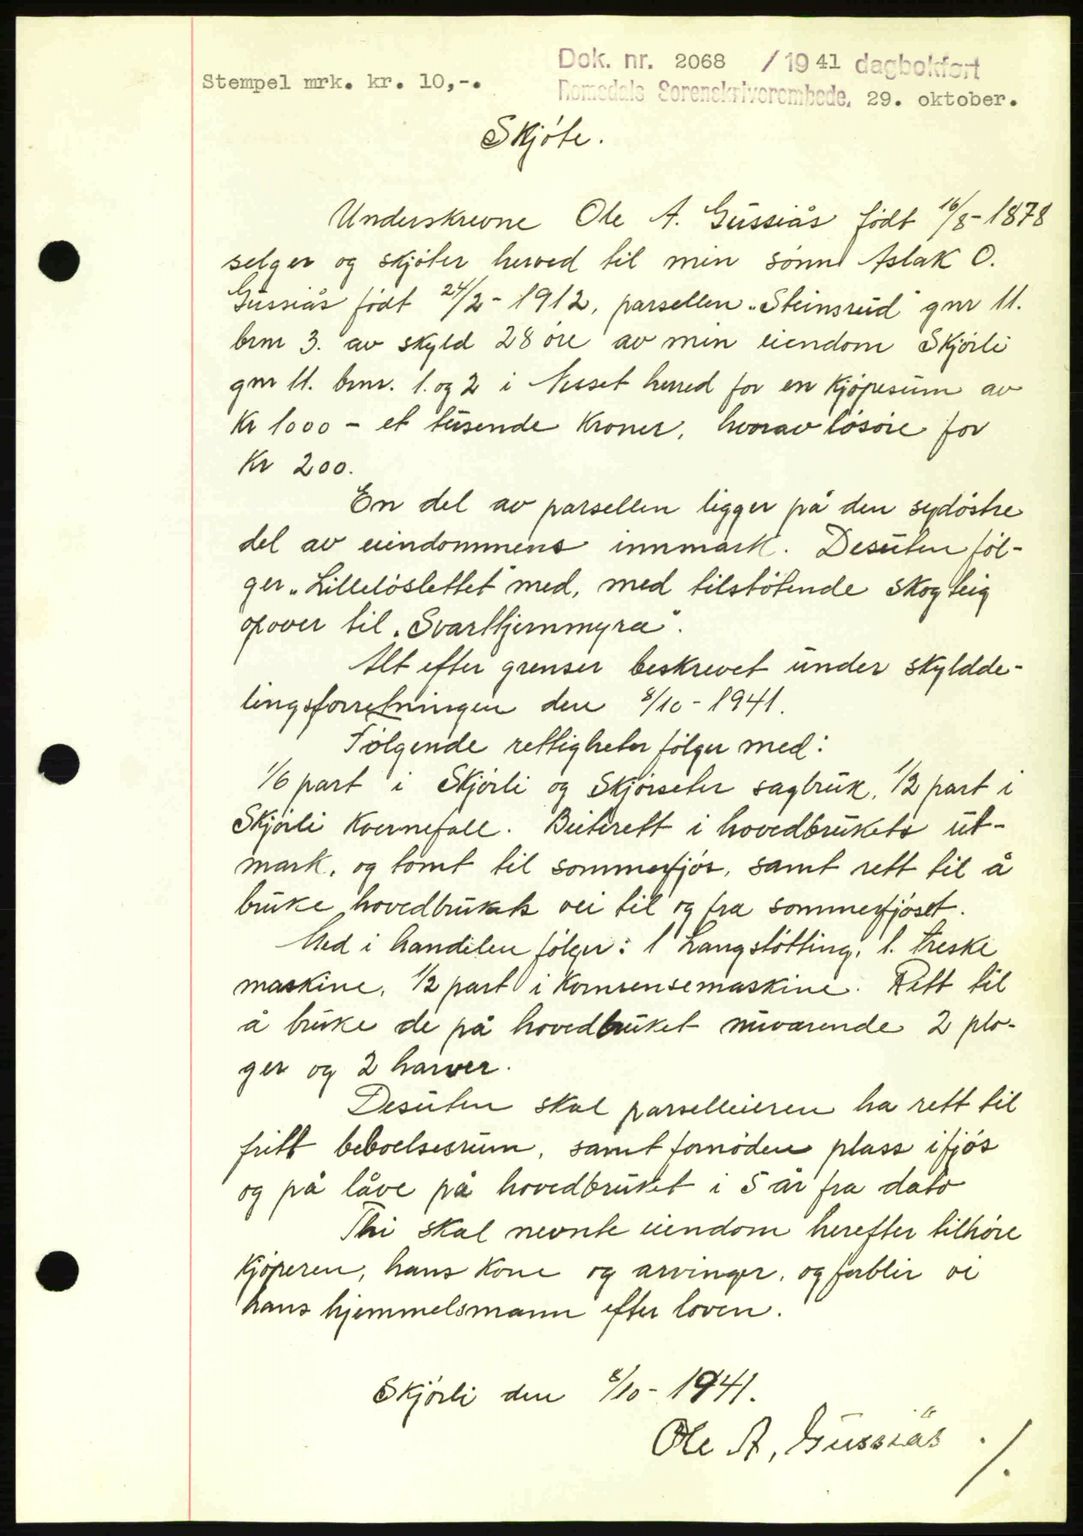 Stempel mrk. kr. 10,-.
Dok. nr. 2068 / 1941 dagbokført
Romsdals Sorenskriverembede, 29. oktober.
Skjøte.
Underskrevne Ole A. Gussiås født 16/8-1878
selger og skjøter herved til min sønn Aslak O.
Gussiås født 24/2-1912, parsellen „Steinsrud" gnr 11.
brnr 3. av skyld 28 øre av min eiendom Skjørli
gnr 11. brnr. 1. og 2 i Nesset herred for en kjøpesum av
Kr 1000 - et tusende kroner, hvorav løsøre for
Kr 200.
En del av parsellen ligger på den sydøstre
del av eiendommens innmark. Desuten føl-
ger „Lilleløslettet" med, med tilstøtende skogteig
opover til „Svarttjernmyra".
Alt efter grenser beskrevet under skyldde-
lingsforretningen den 8/10-1941.
Følgende rettigheter følger med:
1/6 part i Skjørli og Skjørseter sagbruk, 1/2 part i
Skjørli Kvernefall. Beiterett i hovedbrukets ut-
mark, og tomt til sommerfjøs, samt rett til å
bruke hovedbrukets vei til og fra sommerfjøset.
Med i handelen følger: 1 Langstøtting, 1. treske
maskine, 1/2 part i kornrensemaskine. Rett til
å bruke de på hovedbruket nuværende 2 plo-
ger og 2 harver.
Desuten skal parselleieren ha rett til
fritt beboelsesrum, samt fornøden plass i fjøs
og på låve på hovedbruket i 5 år fra dato
Thi skal nevnte eiendom herefter tilhøre
kjøperen, hans kone og arvinger, og forblir vi
hans hjemmelsmann efter loven.
Skjørli den 8/10-1941.
Ole A. Gussiås ./.